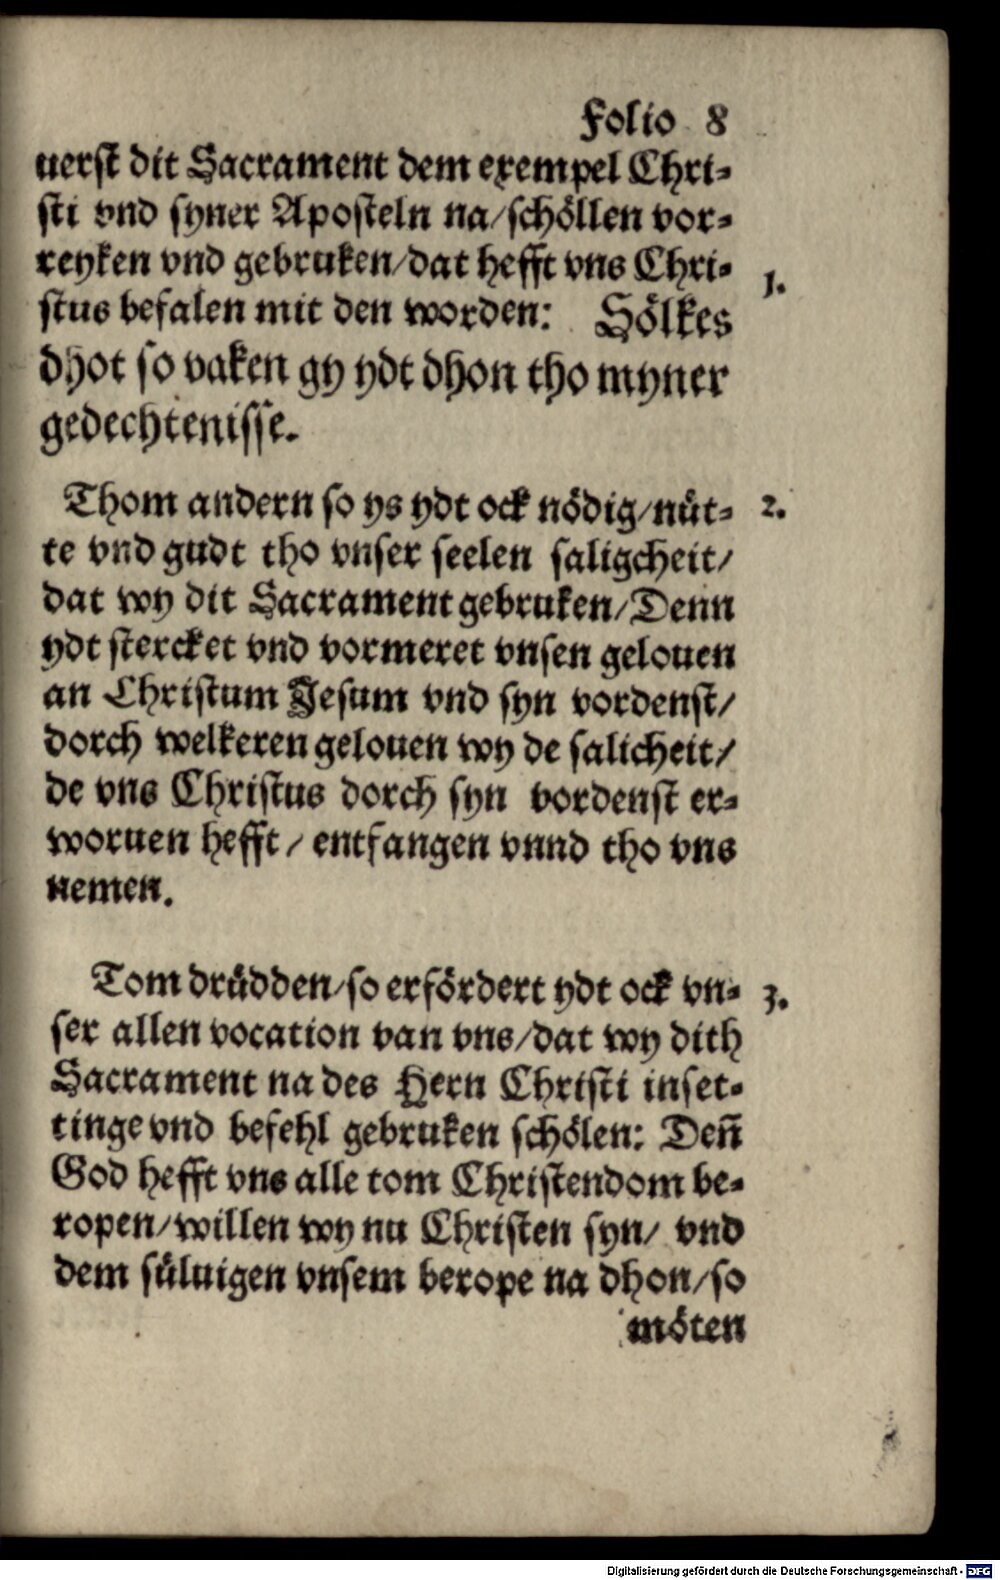 Folio 8
uerst dit Sacrament dem exempel Chri-
sti vnd syner Aposteln na/schöllen vor-
reyken vnd gebruken/dat hefft vns Chri-
stus befalen mit den worden: Sölkes
1.
dhot so vaken gy ydt dhon tho myner
gedechtenisse.
Thom andern so ys ydt ock nödig/nüt-
2.
te vnd gudt tho vnser seelen saligcheit/
dat wy dit Sacrament gebruken/Denn
ydt stercket vnd vormeret vnsen gelouen
an Christum Jesum vnd syn vordenst/
dorch welkeren gelouen wy de salicheit/
de vns Christus dorch syn vordenst er-
woruen hefft/ entfangen vnnd tho vns
nemen.
Tom drüdden/so erfördert ydt ock vn-
3.
ser allen vocation van vns/dat wy dith
Sacrament na des Hern Christi inset-
tinge vnd befehl gebruken schölen: Deñ
God hefft vns alle tom Christendom be-
ropen/willen wy nu Christen syn/ vnd
dem süluigen vnsem berope na dhon/so
möten
Digitalisierung gefördert durch die Deutsche Forschungsgemeinschaft - DFG